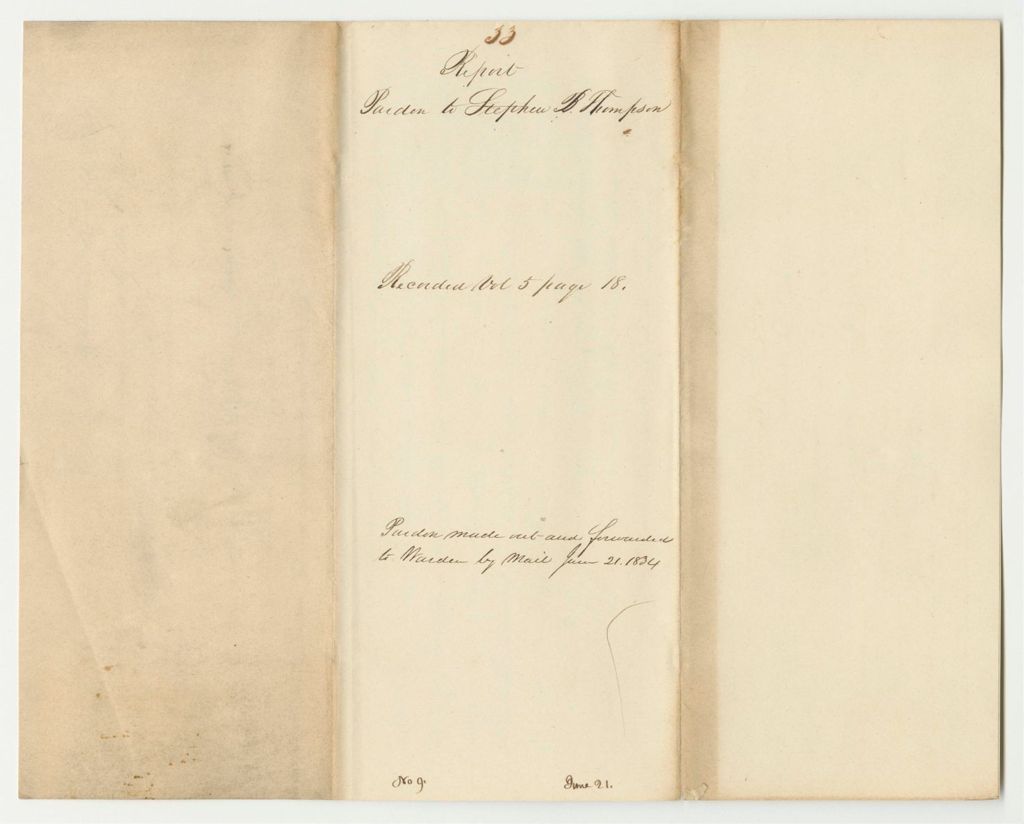 33
Report
Pardon to Stephen B. Thompson
Recorded Vol 5 page 18.
Pardon made out and forwarded
to Warden by Mail June 21. 1834
No 9.
June 21.